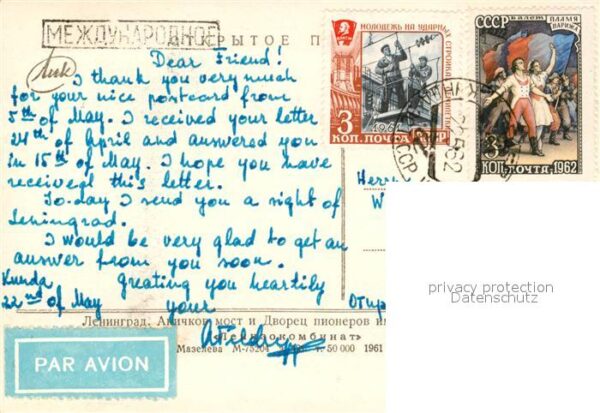 МЕЖДУНАРОДНОЕ
ОТКРЫТОЕ П
Dear Friend!
I thank you very much
for your nice postcard from
5th of May. I received your letter
24th of April and answered you
in 15th of May. I hope you have
received this letter.
To-day I send you a sight of
Leningrad.
I would be very glad to get an
answer from you soon.
Kunda Greating you heartily
22nd of May your
МОЛОДЕЖЬ НА УДАРНЫХ
1961
3 КОП. ПОЧТА СССР
СССР БАЛЕТ ПЛАМЯ
ПАРИЖА
3
КОП. ПОЧТА 1962
Herrn
W
privacy protection
Datenschutz
Ленинград. Аничков мост и Дворец пионеров и
Мазелева М-75204 т. 50 000 1961
PAR AVION